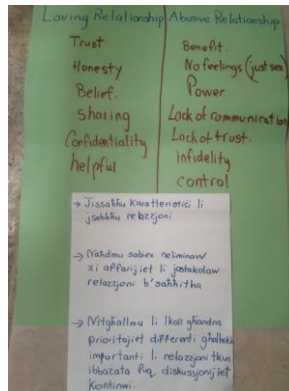 Loving Relationship
Trust
Honesty
Belief.
sharing
Confidentiality
helpful
Abusive Relationship
Benefit.
No feelings (just sex)
Power
Lack of communication
Lack of trust.
infidelity
control
→ Jissaħħu karatteristiċi li
jsebbħu relazzjoni
→ Naħdmu sabiex neliminaw
xi affarijiet li jostakolaw
relazzjoni b'saħħitha
→ Nitgħallmu li lkoll għandna
prioritajiet differenti għalhekk
importanti li relazzjoni tkun
ibbażata fuq diskussjonijiet
kontinwi.